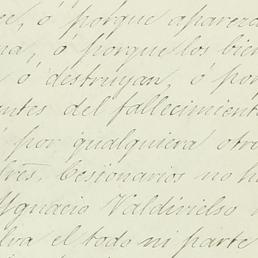 ó porque aparezca
ó porque los bien
ó destruyan, ó por
antes del fallecimiento
por qualquiera otro
Cesionarios no ha
Ygnacio Valdivielso
el todo ni parte